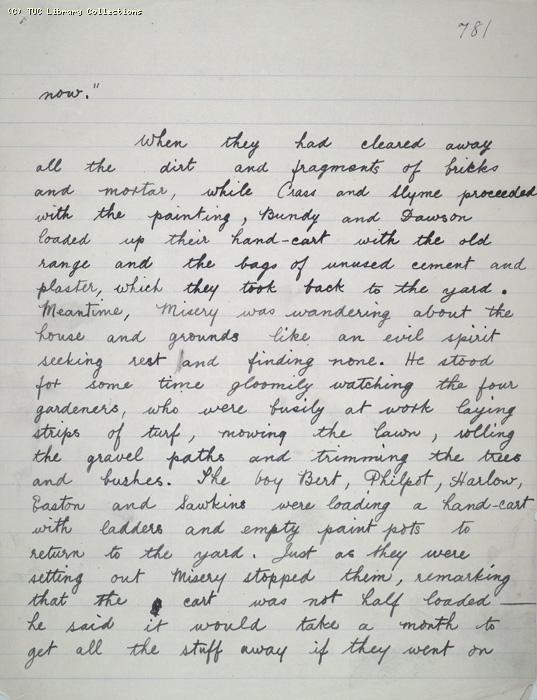 (C) TUC Library Collections
781
now."
When they had cleared away
all the dirt and fragments of bricks
and mortar, while Crass and Slyme proceeded
with the painting, Bundy and Dawson
loaded up their hand-cart with the old
range and the bags of unused cement and
plaster, which they took back to the yard.
Meantime, Misery was wandering about the
house and grounds like an evil spirit
seeking rest and finding none. He stood
for some time gloomily watching the four
gardeners, who were busily at work laying
strips of turf, mowing the lawn, rolling
the gravel paths and trimming the trees
and bushes. The boy Bert, Philpot, Harlow,
Easton and Sawkins were loading a hand-cart
with ladders and empty paint pots to
return to the yard. Just as they were
setting out Misery stopped them, remarking
that the cart was not half loaded —
he said it would take a month to
get all the stuff away if they went on